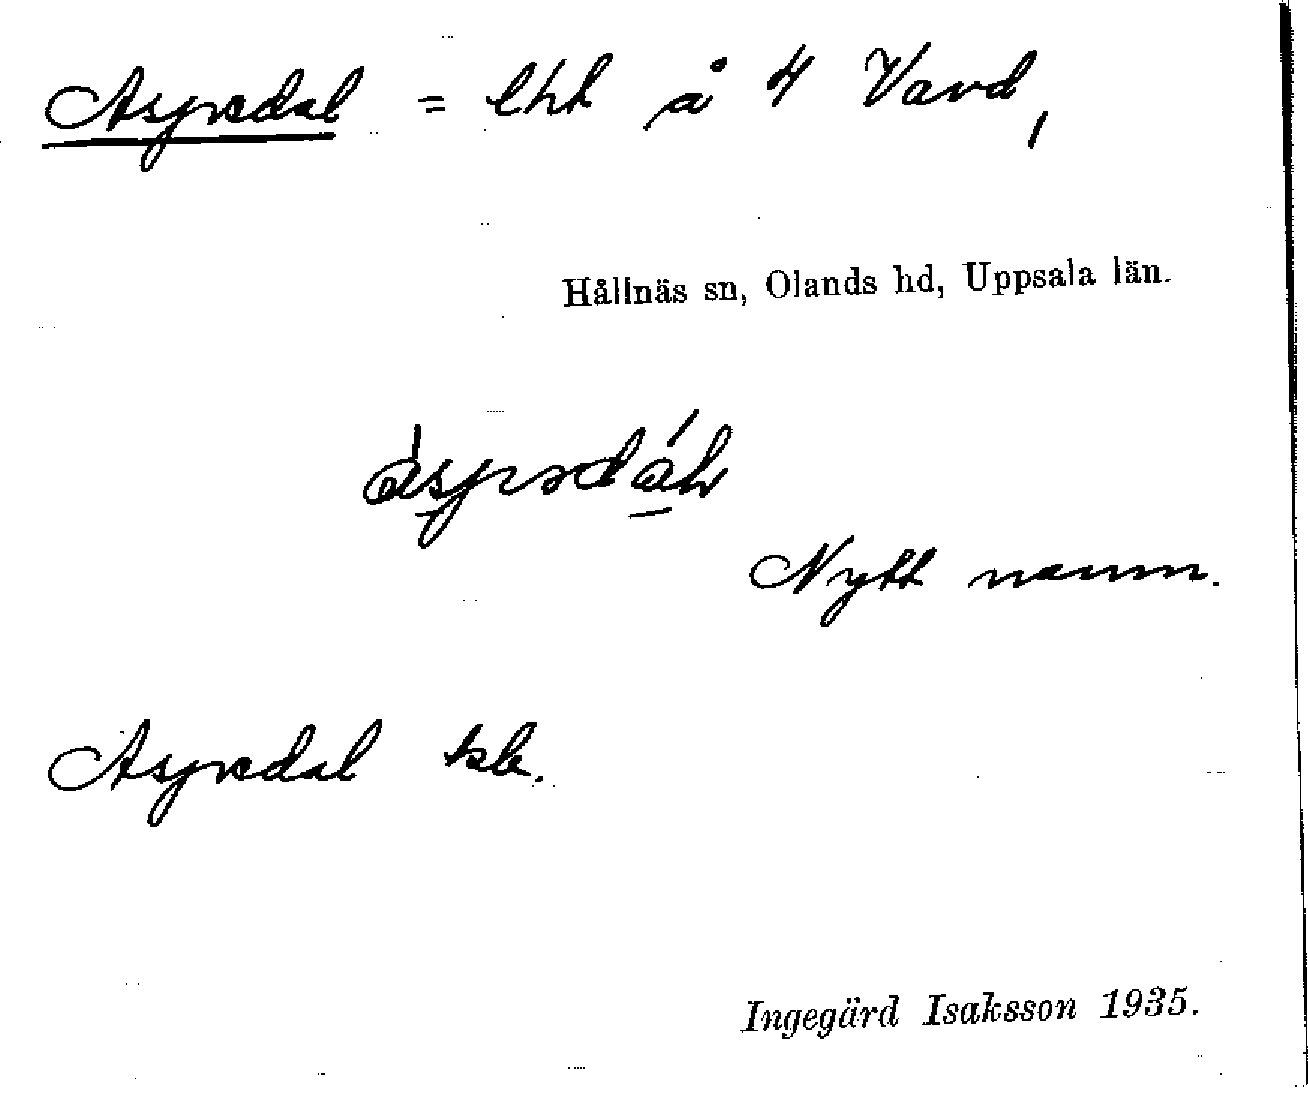 Aspedal = lht å 4 Vavd,
Hållnäs sn, Olands hd, Uppsala län.
Nytt namn.
Aspedal
Ingegärd Isaksson 1935.